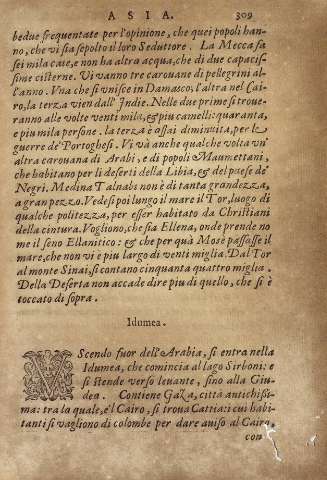 ASIA. 309
bedue frequentate per l'opinione, che quei popoli han-
no, che vi sia sepolto il loro Seduttore. La Mecca fa
sei mila case, e non ha altra acqua, che di due capacis-
sime cisterne. Vi vanno tre carouane di pellegrini al-
l'anno. Vna che si vnisce in Damasco, l'altra nel Cai-
ro, la terza vien dall' Indie. Nelle due prime si troue-
ranno alle volte venti mila, & piu camelli: quaranta,
e piu mila persone. la terza è assai diminuita, per le
guerre de' Portoghesi. Vi và anche qualche volta vn'
altra carouana di Arabi, e di popoli Maumettani,
che habitano per li deserti della Libia, & del paese de'
Negri. Medina Talnabi non è di tanta grandezza,
a gran pezzo. Vedesi poi lungo il mare il Tor, luogo di
qualche politezza, per esser habitato da Christiani
della cintura. Vogliono, che sia Ellena, onde prende no
me il seno Ellanitico: & che per quà Mosè passasse il
mare, che non vi è piu largo di venti miglia. Dal Tor
al monte Sinai, si contano cinquanta quattro miglia.
Della Deserta non accade dire piu di quello, che si è
toccato di sopra.
Idumea.
VScendo fuor dell'Arabia, si entra nella
Idumea, che comincia al lago Sirboni: e
si stende verso leuante, sino alla Giu-
dea. Contiene Gaza, città antichissi-
ma: tra la quale, e'l Cairo, si troua Cattia: i cui habi-
tanti si vagliono di colombe per dare auiso al Cairo,
con